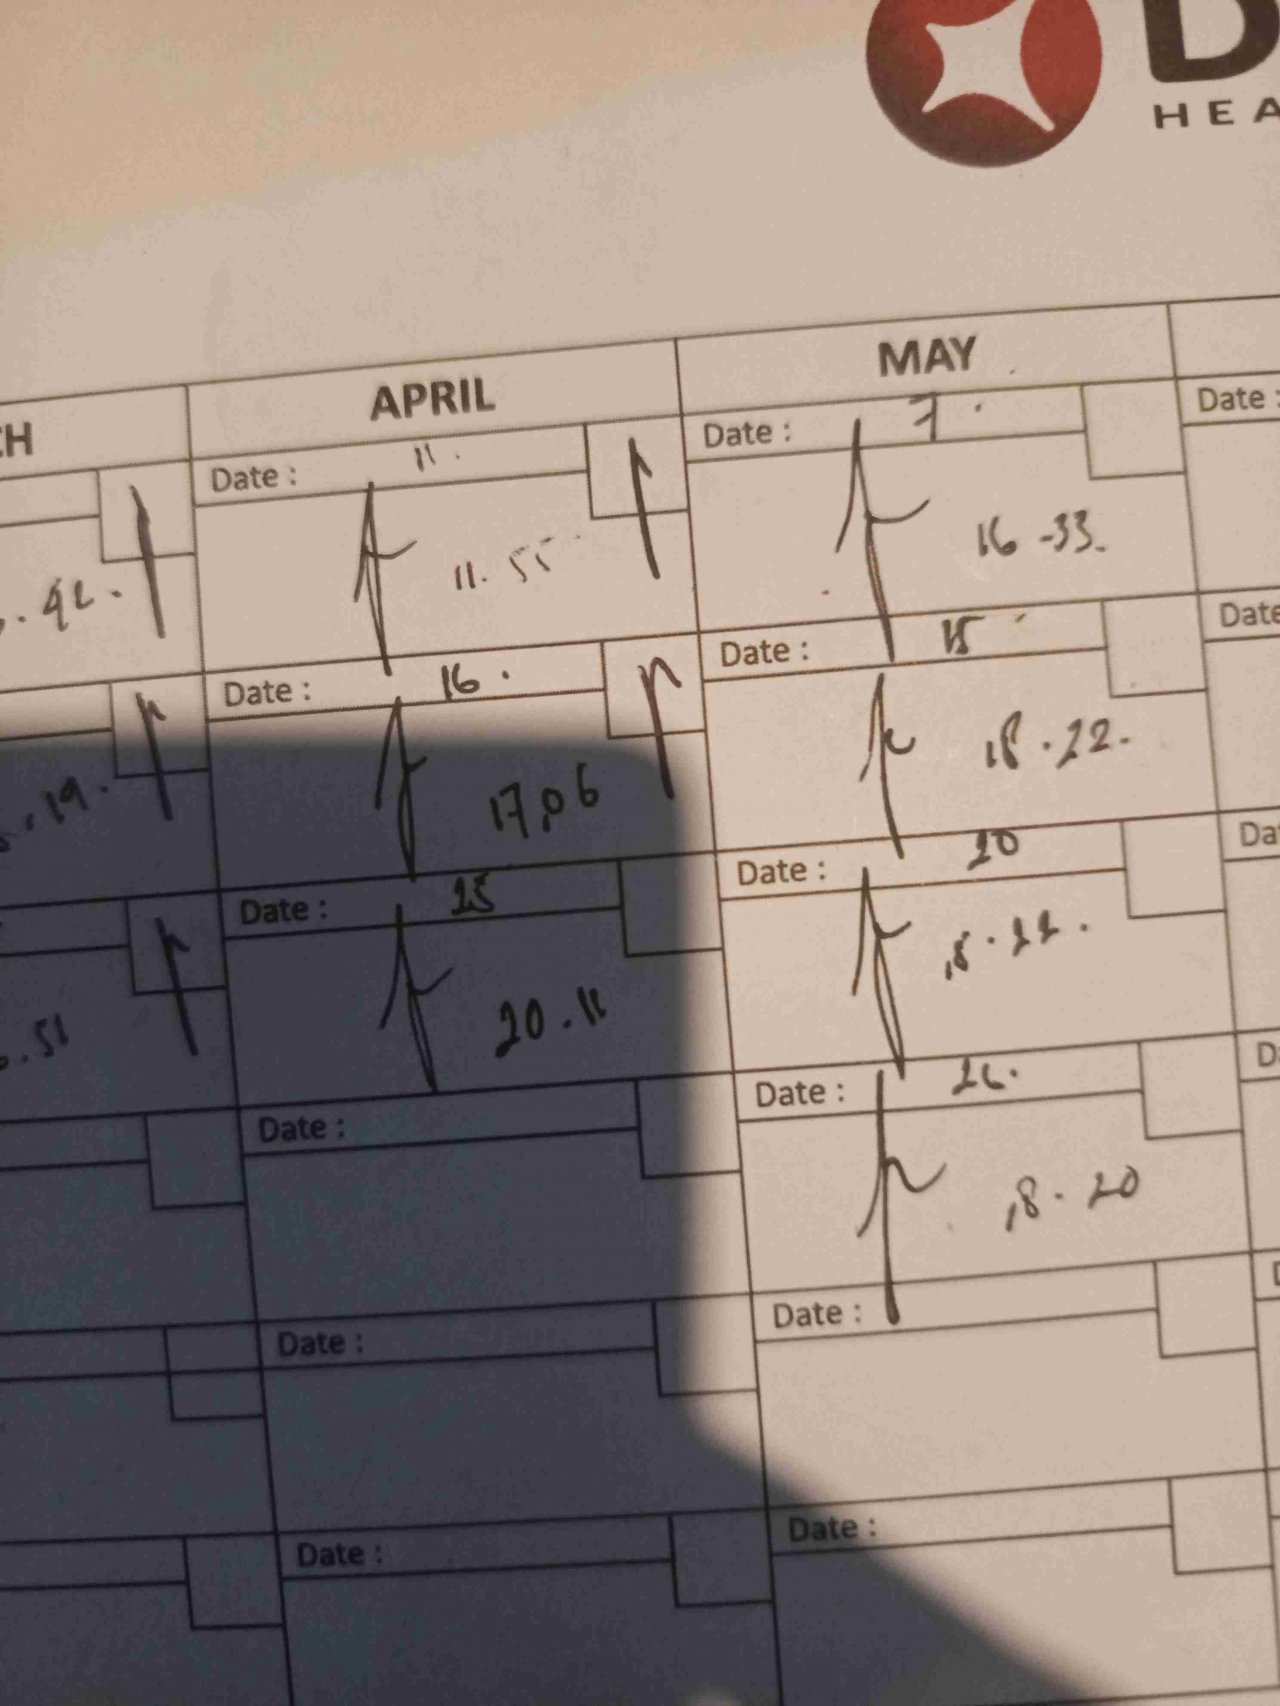 D
HEA
CH
APRIL
MAY
Date : 11.
11.55
Date : 7.
16-33.
Date :
.42.
Date : 16.
17,06
Date : 15
18.22.
Date
.19.
Date : 25
20.11
Date : 20
18.22.
Da
.51
Date :
Date : 26.
18.20
D
Date :
Date :
D
Date :
Date :